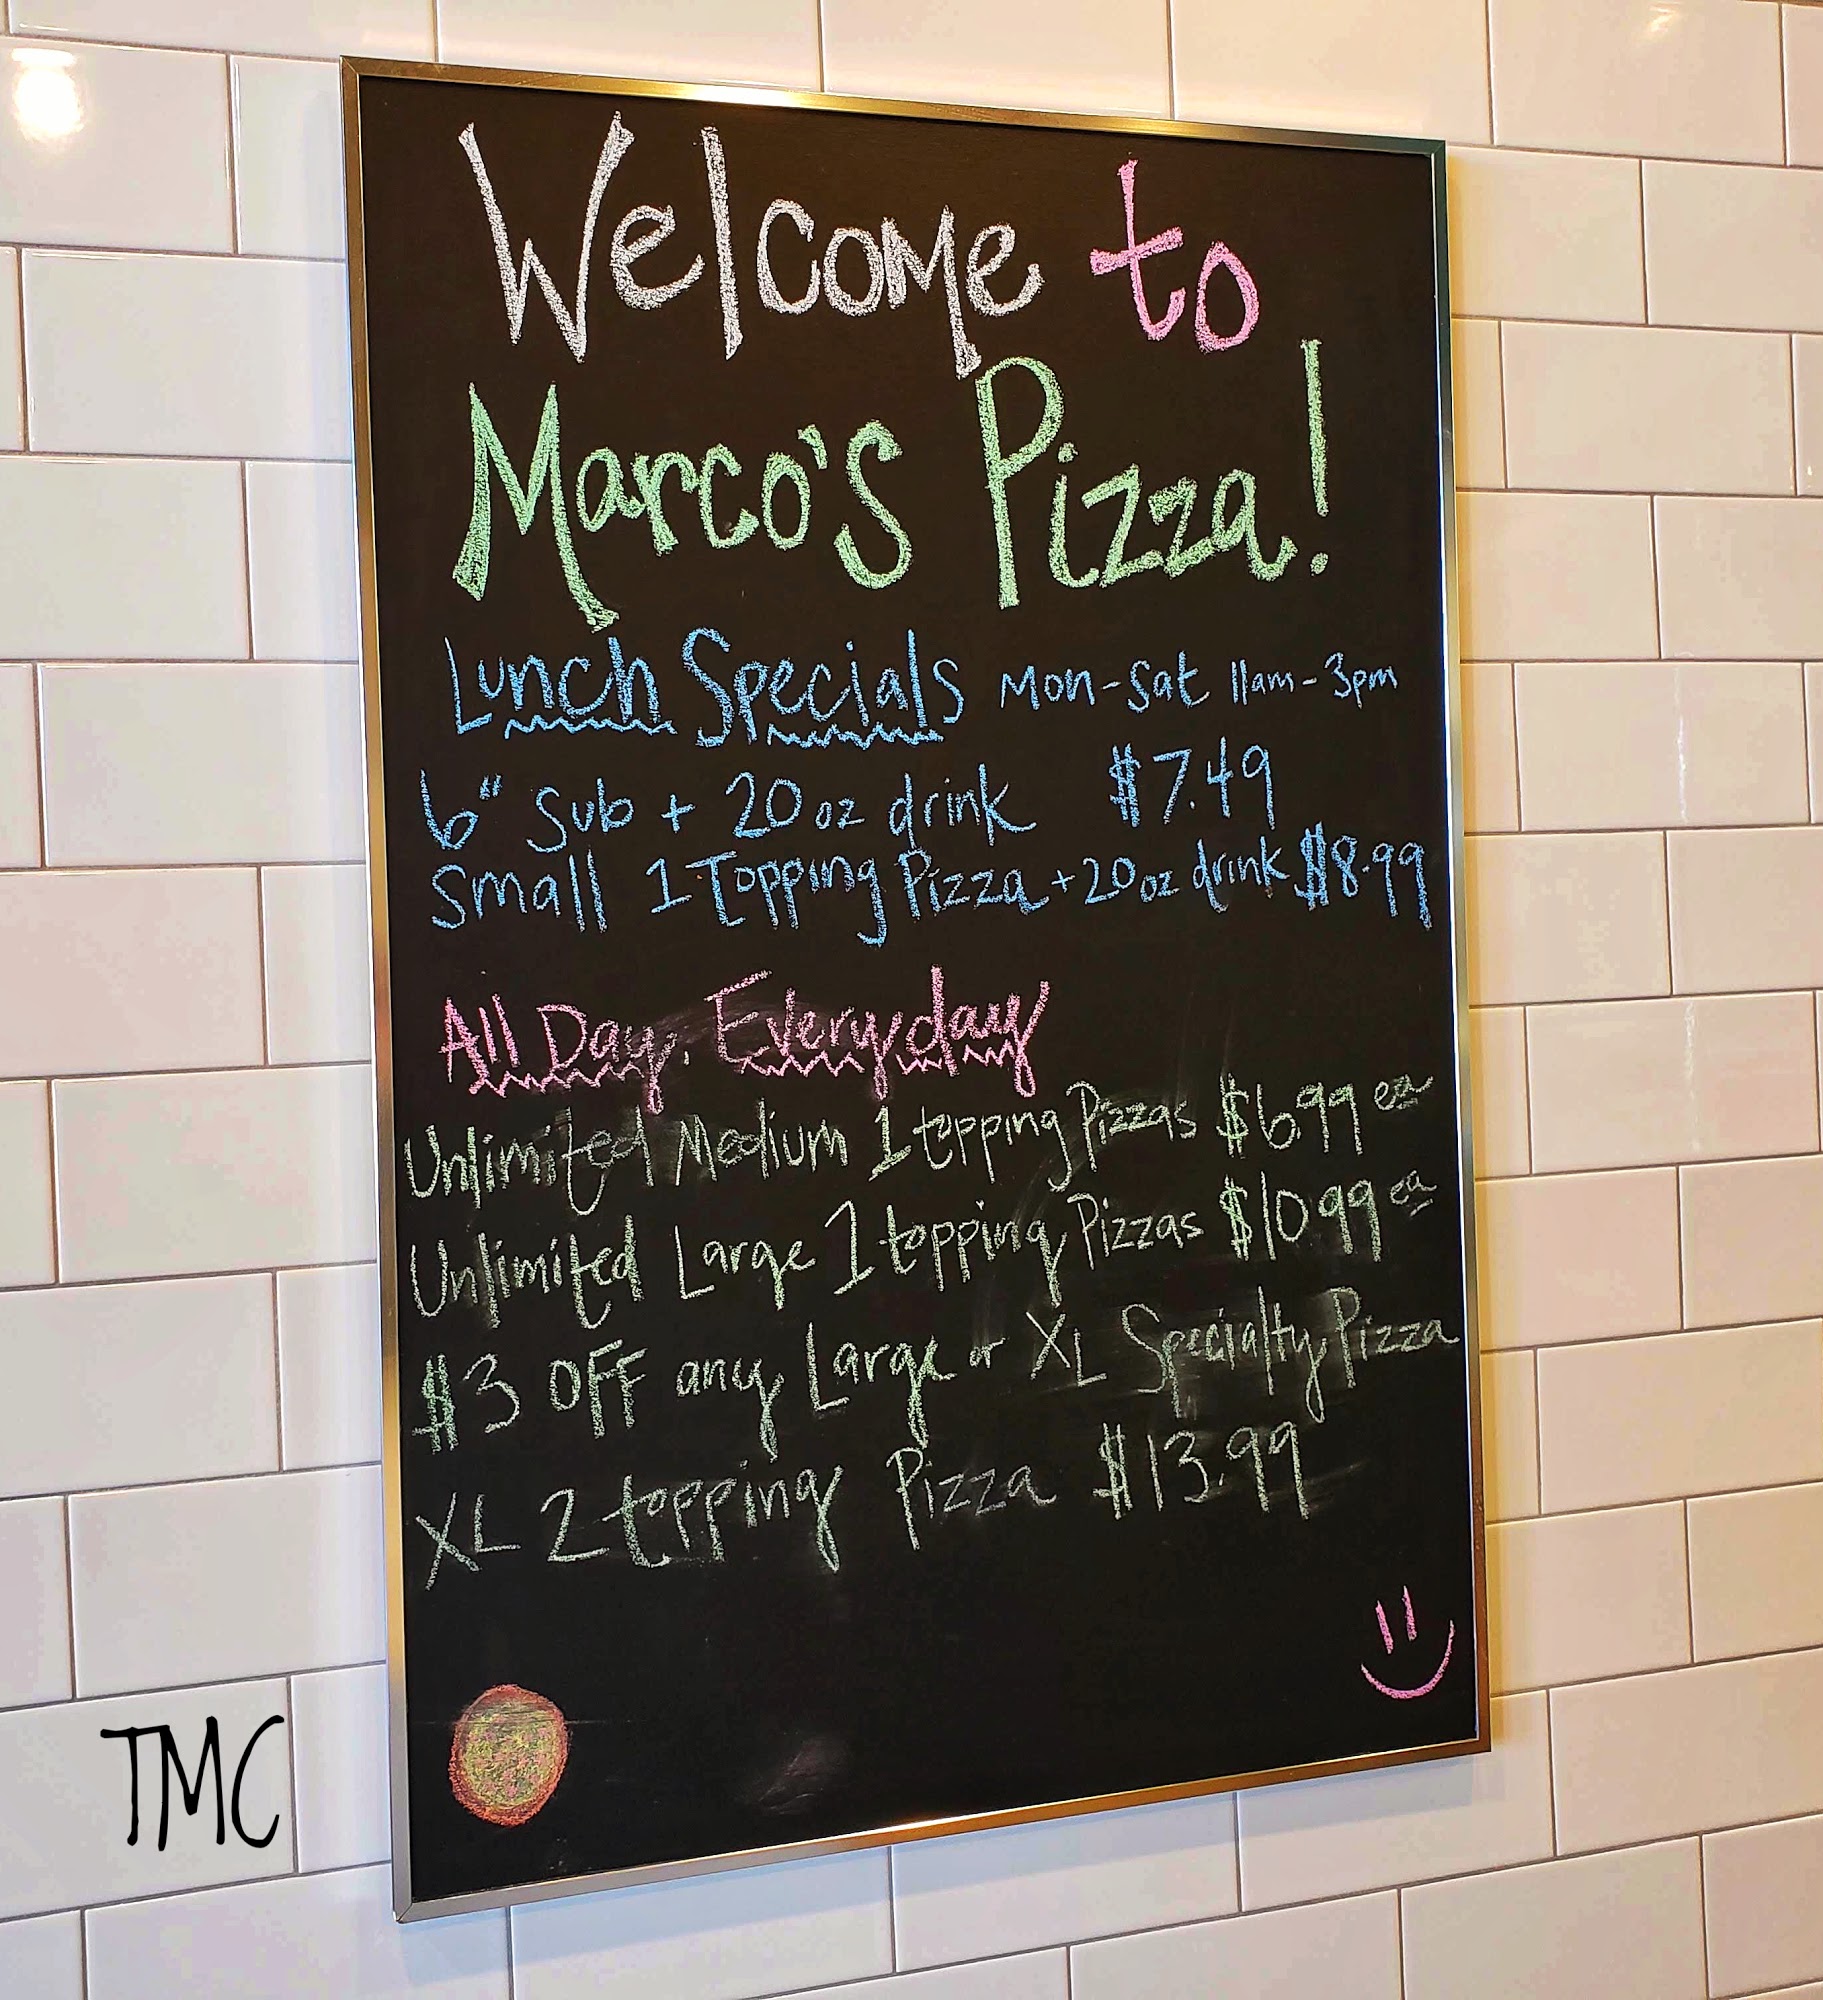 Welcome to
Marco's Pizza!
Lunch Specials Mon-Sat 11am-3pm
6" Sub + 20 oz drink $7.49
Small 1 Topping Pizza + 20 oz drink $8.99
All Day. Everyday
Unlimited Medium 1 topping Pizzas $6.99 ea
Unlimited Large 1 topping Pizzas $10.99 ea
$3 OFF any Large or XL Specialty Pizza
XL 2 topping Pizza $13.99
TMC